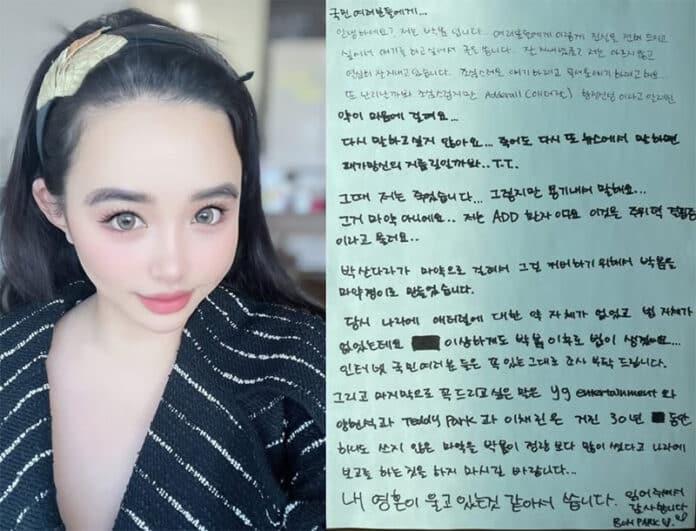 국민 여러분들에게...
안녕하세요? 저는 박봄 입니다.. 여러분들에게 이렇게 진심을 전해 드리고
싶어서 얘기를 하고싶어서 글을 씁니다. 잘지내셨죠? 저는 아프지않고
열심히 잘지내고 있습니다. 얘기 하려고 해요..
또 조심스럽지만 Adderall 향정신성 이라고 알려진
약이 마음에 걸려요...
다시 말하고싶지 않아요... 죽어도 다시 또 뉴스에서 말하면
패가망신의 지름길일까봐.. T.T.
그때 저는 죽었습니다... 그렇지만 용기내어 말해요...
그거 마약 아니에요.. 저는 ADD 환자 이고요 이것을 주의력 결핍증
이라고 불러요..
박산다라가 마약으로 걸려서 그걸 커버하기 위해서 박봄을
마약쟁이로 만들었습니다.
당시 나라에 애더럴에 대한 약 자체가 없었고 법 자체가
없었는데요 이상하게도 박봄 이후로 법이 생겼어요...
인터넷 국민여러분 들은 꼭 있는그대로 조사 부탁 드립니다.
그리고 마지막으로 꼭드리고 싶은 말은 yg entertainment 와
양현석과 Teddy Park 과 이채린은 거진 30년 동안
하나도 쓰지 않은 마약을 박봄이 정량 보다 많이 썼다고 나라에
보고를 하는것을 하지 마시길 바랍니다...
내 영혼이 울고 있는것 같아서 씁니다. 읽어 주셔서
감사합니다
BOM PARK